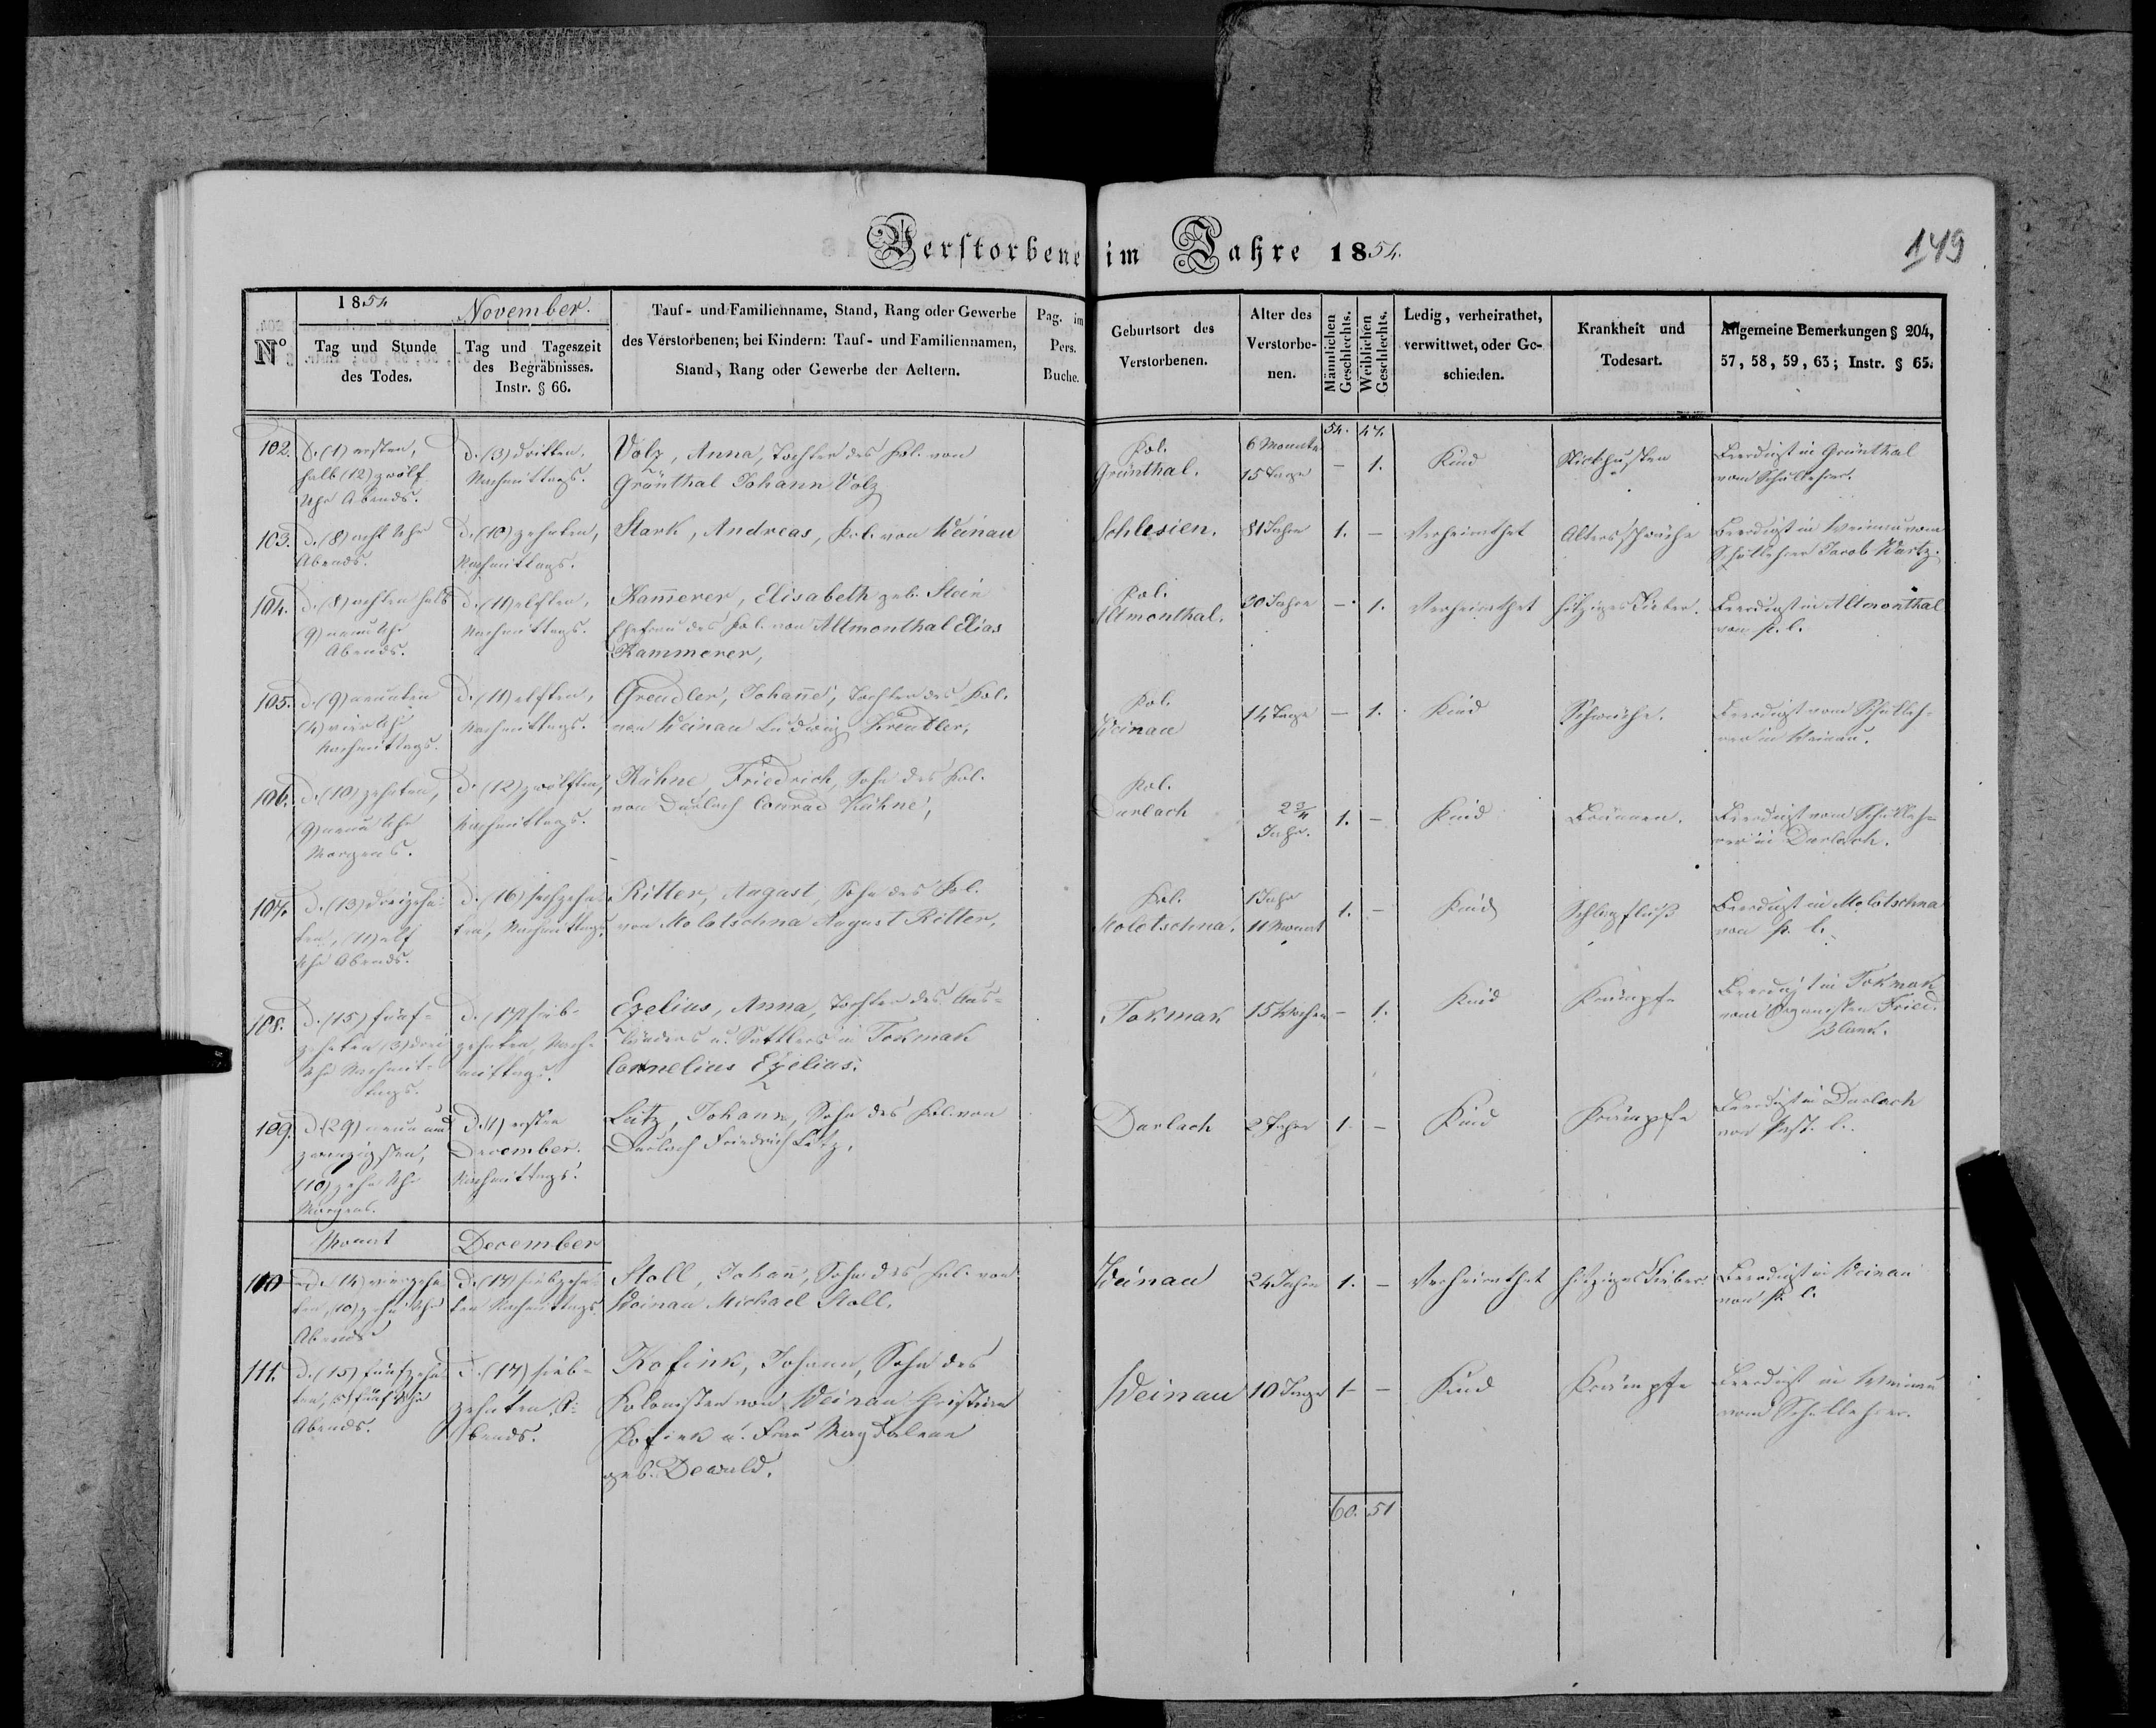 Verstorbene im Jahre 1854.
149
No
1854 November.
Tag und Stunde des Todes.
Tag und Tageszeit des Begräbnisses. Instr. § 66.
Tauf- und Familienname, Stand, Rang oder Gewerbe
des Verstorbenen; bei Kindern: Tauf- und Familiennamen,
Stand, Rang oder Gewerbe der Aeltern.
Pag. im Pers. Buche.
Geburtsort des Verstorbenen.
Alter des Verstorbe-nen.
Männlichen Geschlechts.
Weiblichen Geschlechts.
Ledig, verheirathet, verwittwet, oder Ge-schieden.
Krankheit und Todesart.
Allgemeine Bemerkungen § 204,
57, 58, 59, 63; Instr. § 65.
54. 47.
102. D. (1) ersten,
halb (12) zwölf
Uhr Abends.
D. (3) dritten,
Nachmittags.
Volz, Anna, Tochter des Kol. von
Grünthal Johann Volz
Kol.
Grünthal.
6 Monate
15 Tage
– 1.
Kind
Stickhusten
Beerdigt in Grünthal
vom Schullehrer.
103. D. (8) acht Uhr
Abends.
D. (10) zehnten,
Nachmittags.
Stark, Andreas, Kol. von Weinau
Schlesien.
81 Jahre
1. –
Verheirathet
Altersschwäche
Beerdigt in Weinau vom
Schullehrer Jacob Wurtz.
104. D. (8) achten halb
(9) neun Uhr
Abends.
D. (11) elften,
Nachmittags.
Kam̄erer, Elisabeth geb. Stein
Ehefrau des Kol. von Altmonthal Elias
Kammerer,
Kol.
Altmonthal.
30 Jahre
– 1.
Verheirathet
hitziges Fieber.
Beerdigt in Altmonthal
von P. l.
105. D. (9) neunten
(4) vier Uhr
Nachmittags.
D. (11) elften,
Nachmittags.
Greudler, Johan̄e, Tochter des Kol.
von Weinau Ludwig Kreutler,
Kol.
Weinau
14 Tage
– 1.
Kind
Schwäche.
Beerdigt vom Schulleh-
rer in Weinau.
106. D. (10) zehnten,
(9) neun Uhr
Morgens.
D. (12) zwölften,
Nachmittags.
Kühne, Friedrich, Sohn des Kol.
von Durlach Conrad Kühne,
Kol.
Durlach
2 3/4
Jahr.
1. –
Kind
Bräunen.
Beerdigt vom Schulleh-
rer in Durlach.
107. D. (13) dreizehn-
ten, (11) elf
Uhr Abends.
D. (16) sechzehn-
ten, Nachmittags.
Ritter, August, Sohn des Kol.
von Molotschna August Ritter,
Kol.
Molotschna.
1 Jahr
11 Monat
1. –
Kind
Schlagfluß
Beerdigt in Molotschna
von P. l.
108. D. (15) fünf-
zehnten (3) drei
Uhr Nachmit-
tags.
D. (17) sieb-
zehnten, Nach-
mittags.
Ezelius, Anna, Tochter des Aus-
länders u. Sattlers in Tokmak
Cornelius Ezelius.
Tokmak
15 Wochen
– 1.
Kind
Krämpfe
Beerdigt in Tokmak
vom Organisten Fried.
Blank.
109. D. (29) neun und
zwanzigsten,
(10) zehn Uhr
Morgens.
D. (1) ersten
December.
Nachmittags.
Lutz, Johann, Sohn des Kol. von
Durlach Friedrich Lutz,
Durlach
2 Jahre
1. –
Kind
Krämpfe
Beerdigt in Durlach
von Past. l.
Monat December
110 D. (14) vierzehn-
ten, (10) zehn Uhr
Abends
D. (17) siebzehn-
ten Nachmittags.
Stoll, Johan̄, Sohn des Kol. von
Weinau Michael Stoll.
Weinau
24 Jahre
1. –
Verheirathet
hitziges Fieber
Beerdigt in Weinau
von P. l.
111. D. (15) fünfzehn-
ten, (5) fünf Uhr
Abends.
D. (17) sieb-
zehnten, A-
bends.
Kofink, Johann, Sohn des
Kolonisten von Weinau Christian
Kofink u. Frau Magdalena
geb. Dewald.
Weinau
10 Tage
1 –
Kind
Krämpfe
Beerdigt in Weinau
vom Schullehrer.
60. 51